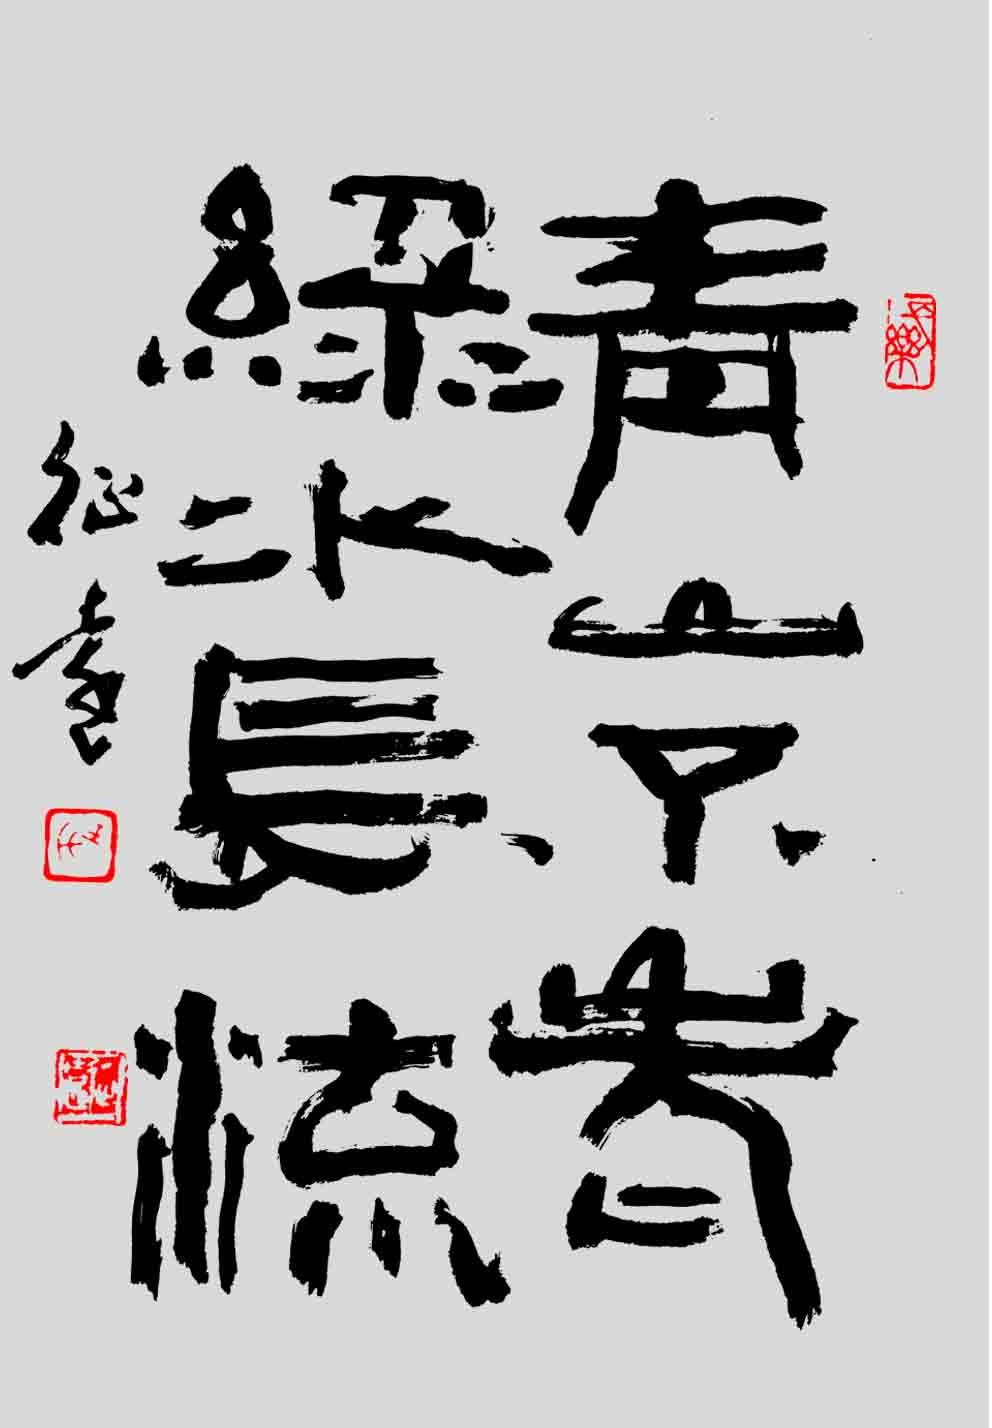 青山不老
綠水長流
征遠